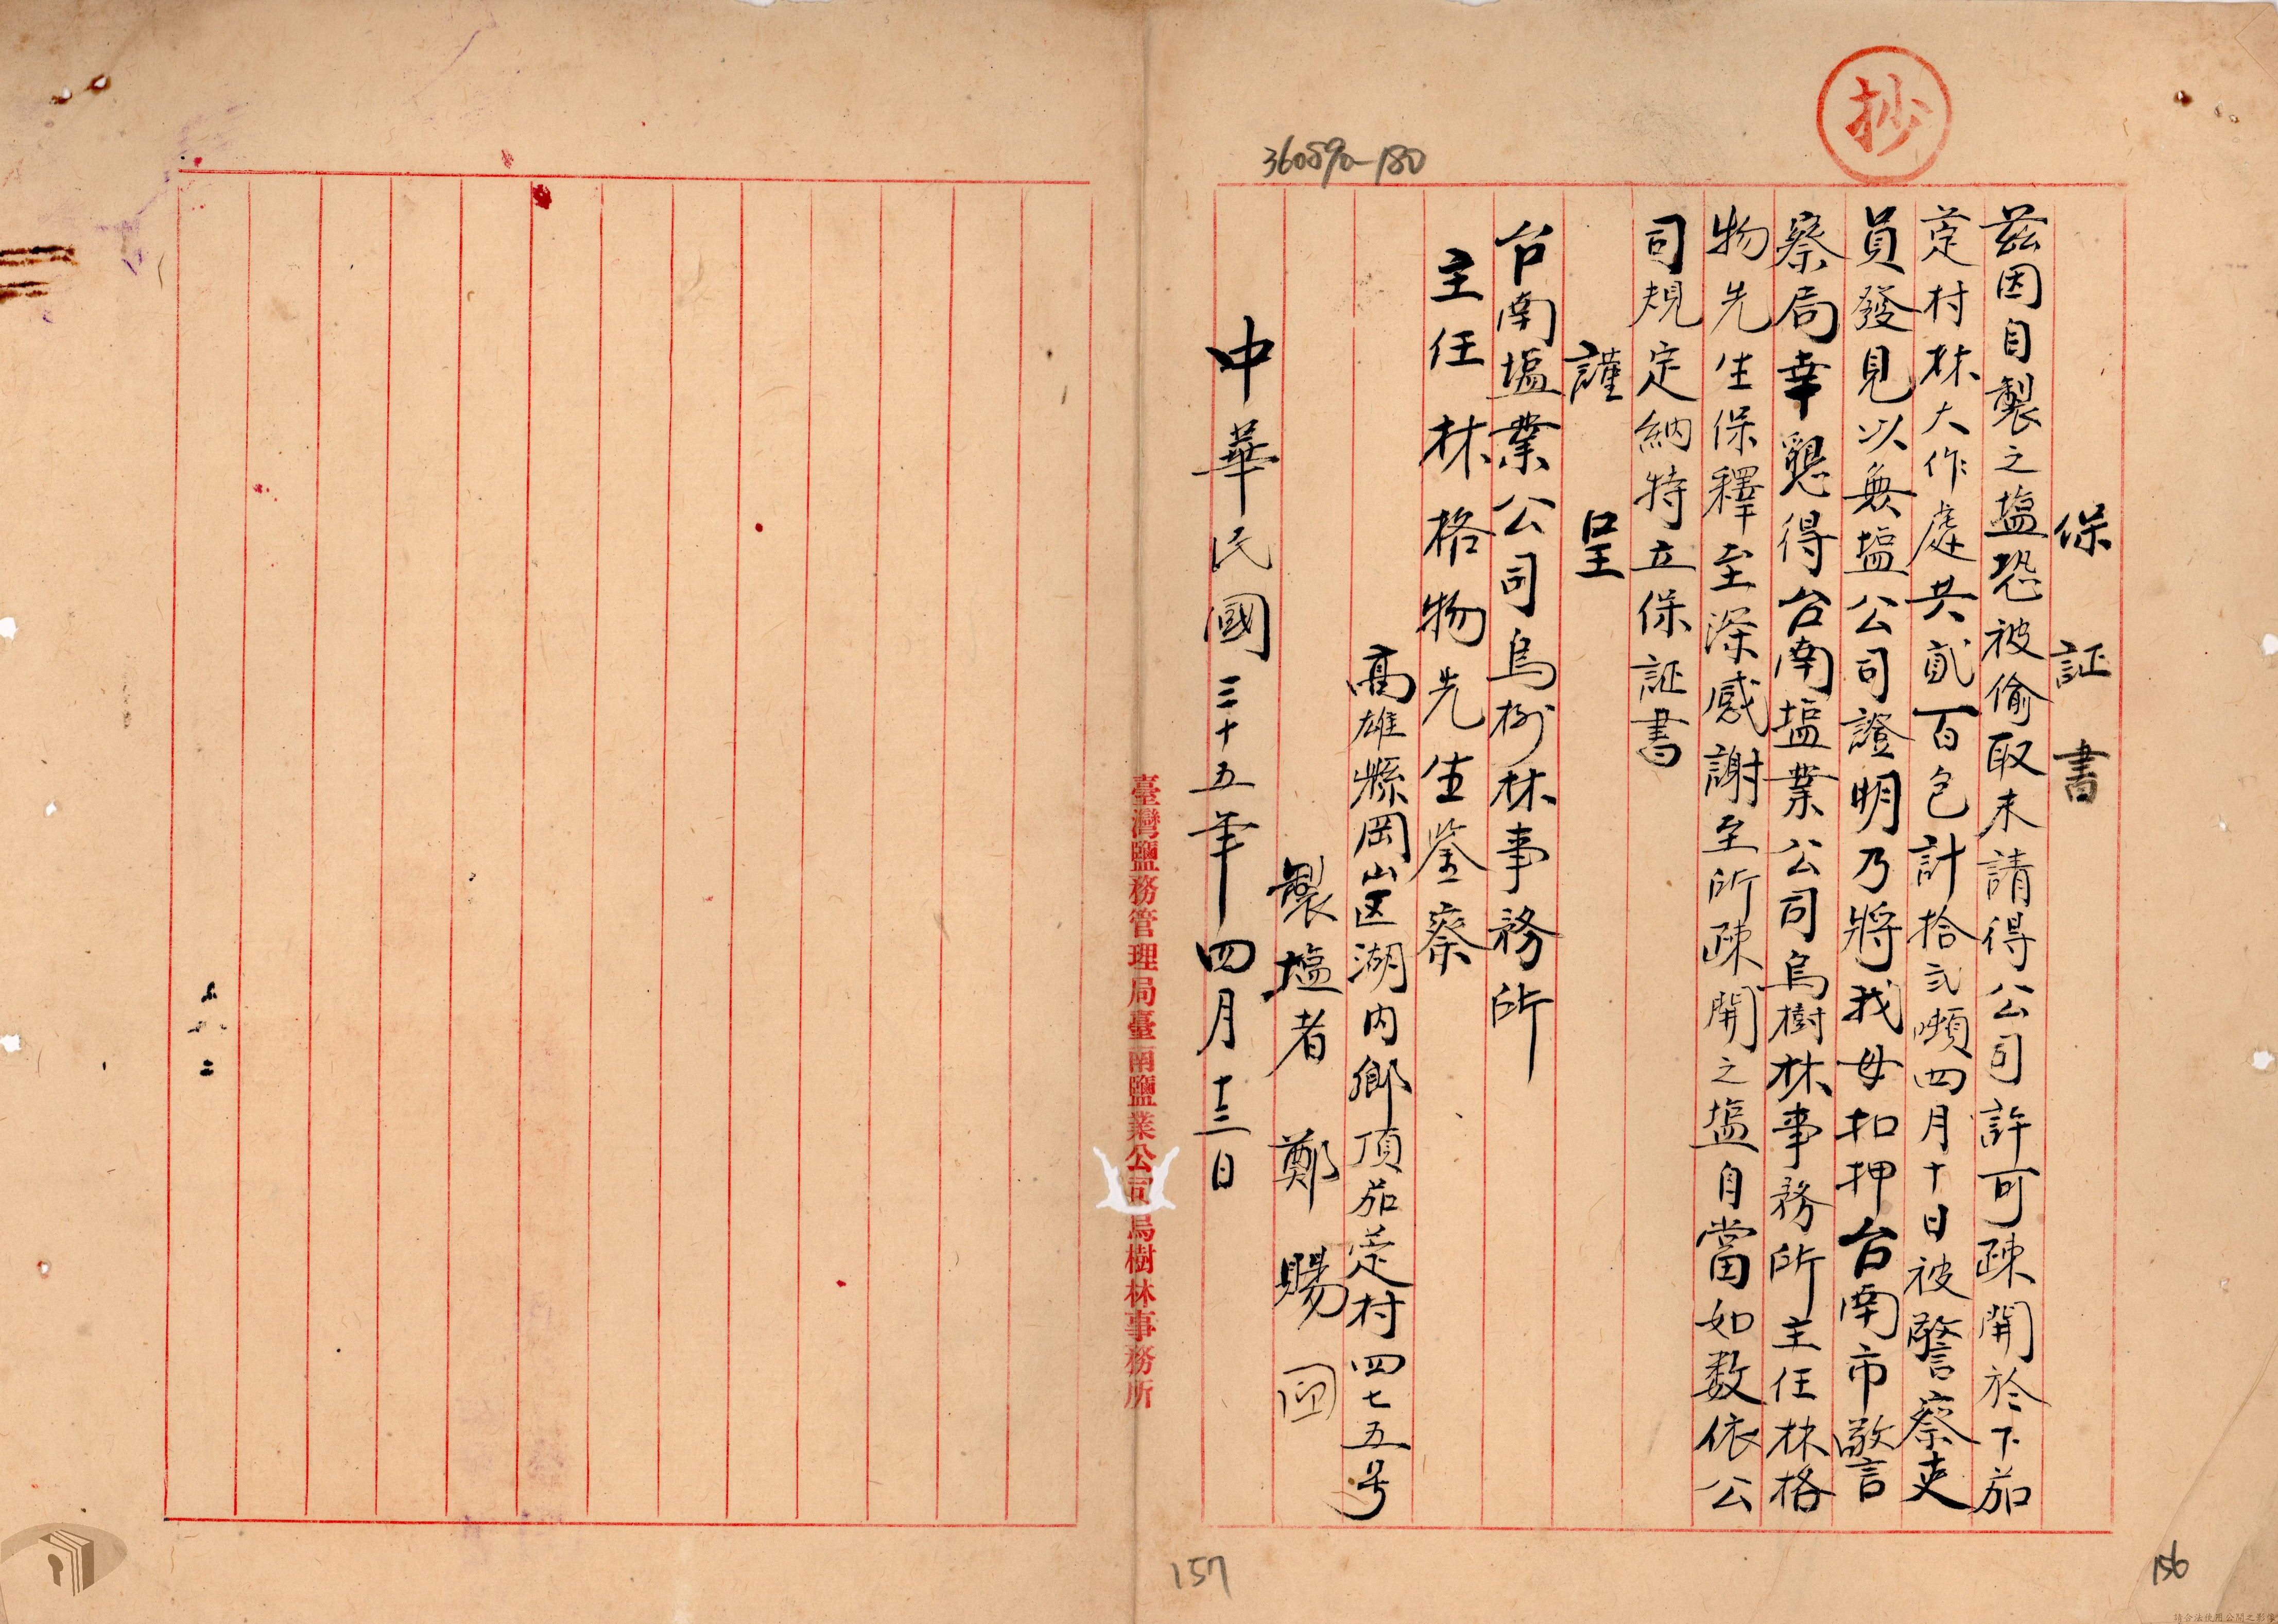 抄
360590-180
保証書
茲因自製之塩恐被偷取未請得公司許可疎開於下茄
萣村林大作處共貳百包計拾弍噸四月十日被警察吏
員發見以無塩公司證明乃將我母扣押台南市警
察局幸懇得台南塩業公司烏樹林事務所主任林格
物先生保釋至深感謝至所疎開之塩自當如数依公
司規定納特立保証書
謹呈
台南塩業公司烏树林事務所
主任林格物先生鉴察
高雄縣岡山区湖内鄉頂茄萣村四七五号
製塩者 鄭賜 印
中華民國三十五年四月十三日
臺灣鹽務管理局臺南鹽業公司烏樹林事務所
157
156
請合法使用公開之影像